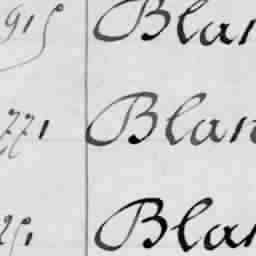 915 Blan
771 Blan
Blan